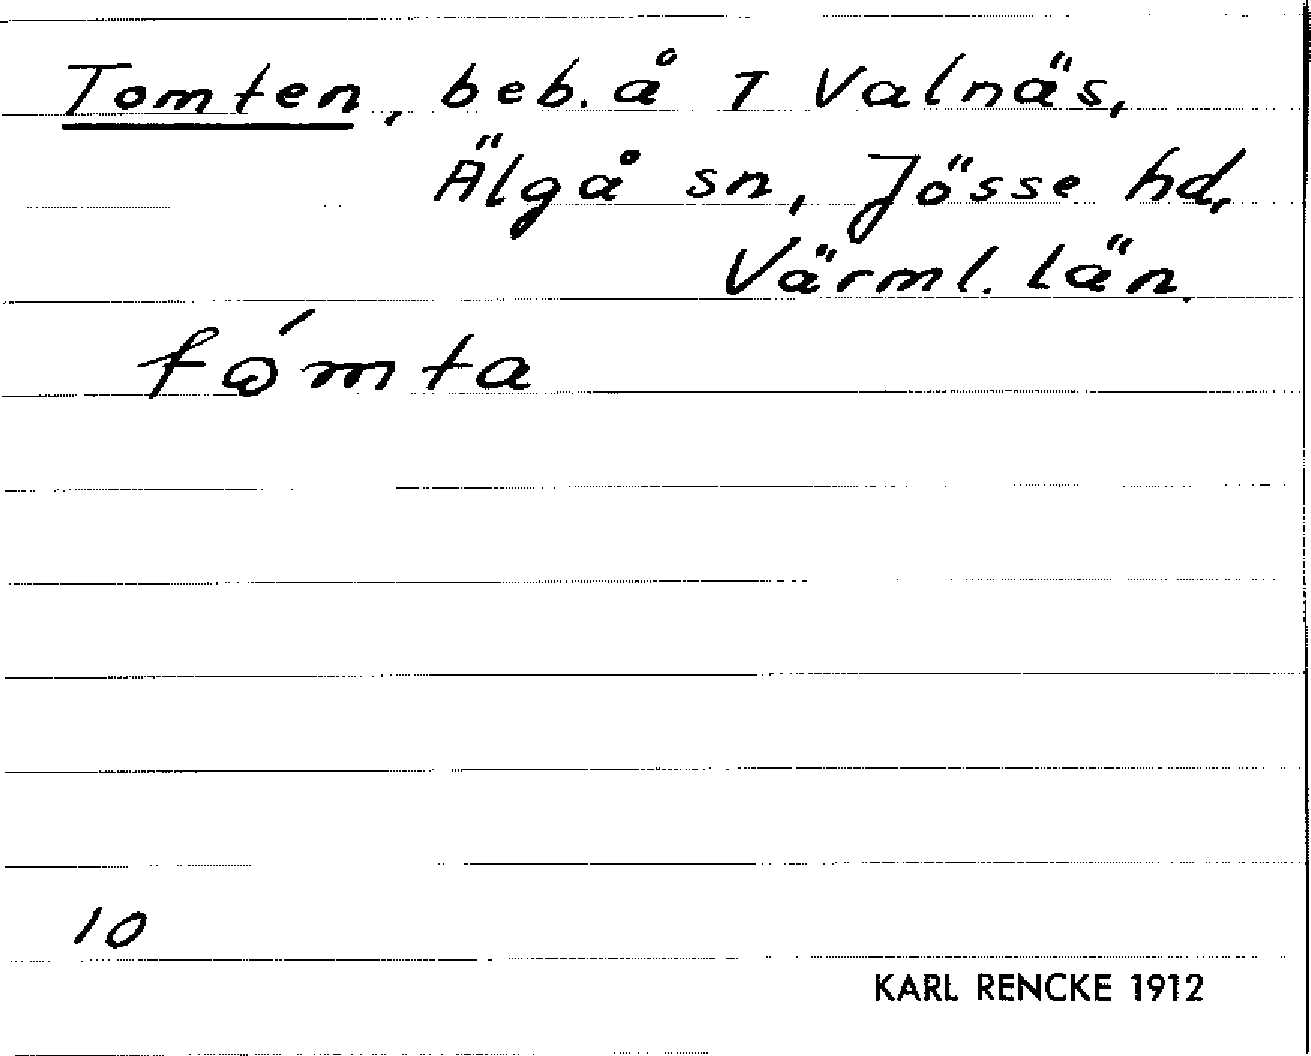 Tomten, beb. å 1 Valnäs,
Älgå sn, Jösse hd,
Värml. län.
tǫ́mta
10
KARL RENCKE 1912